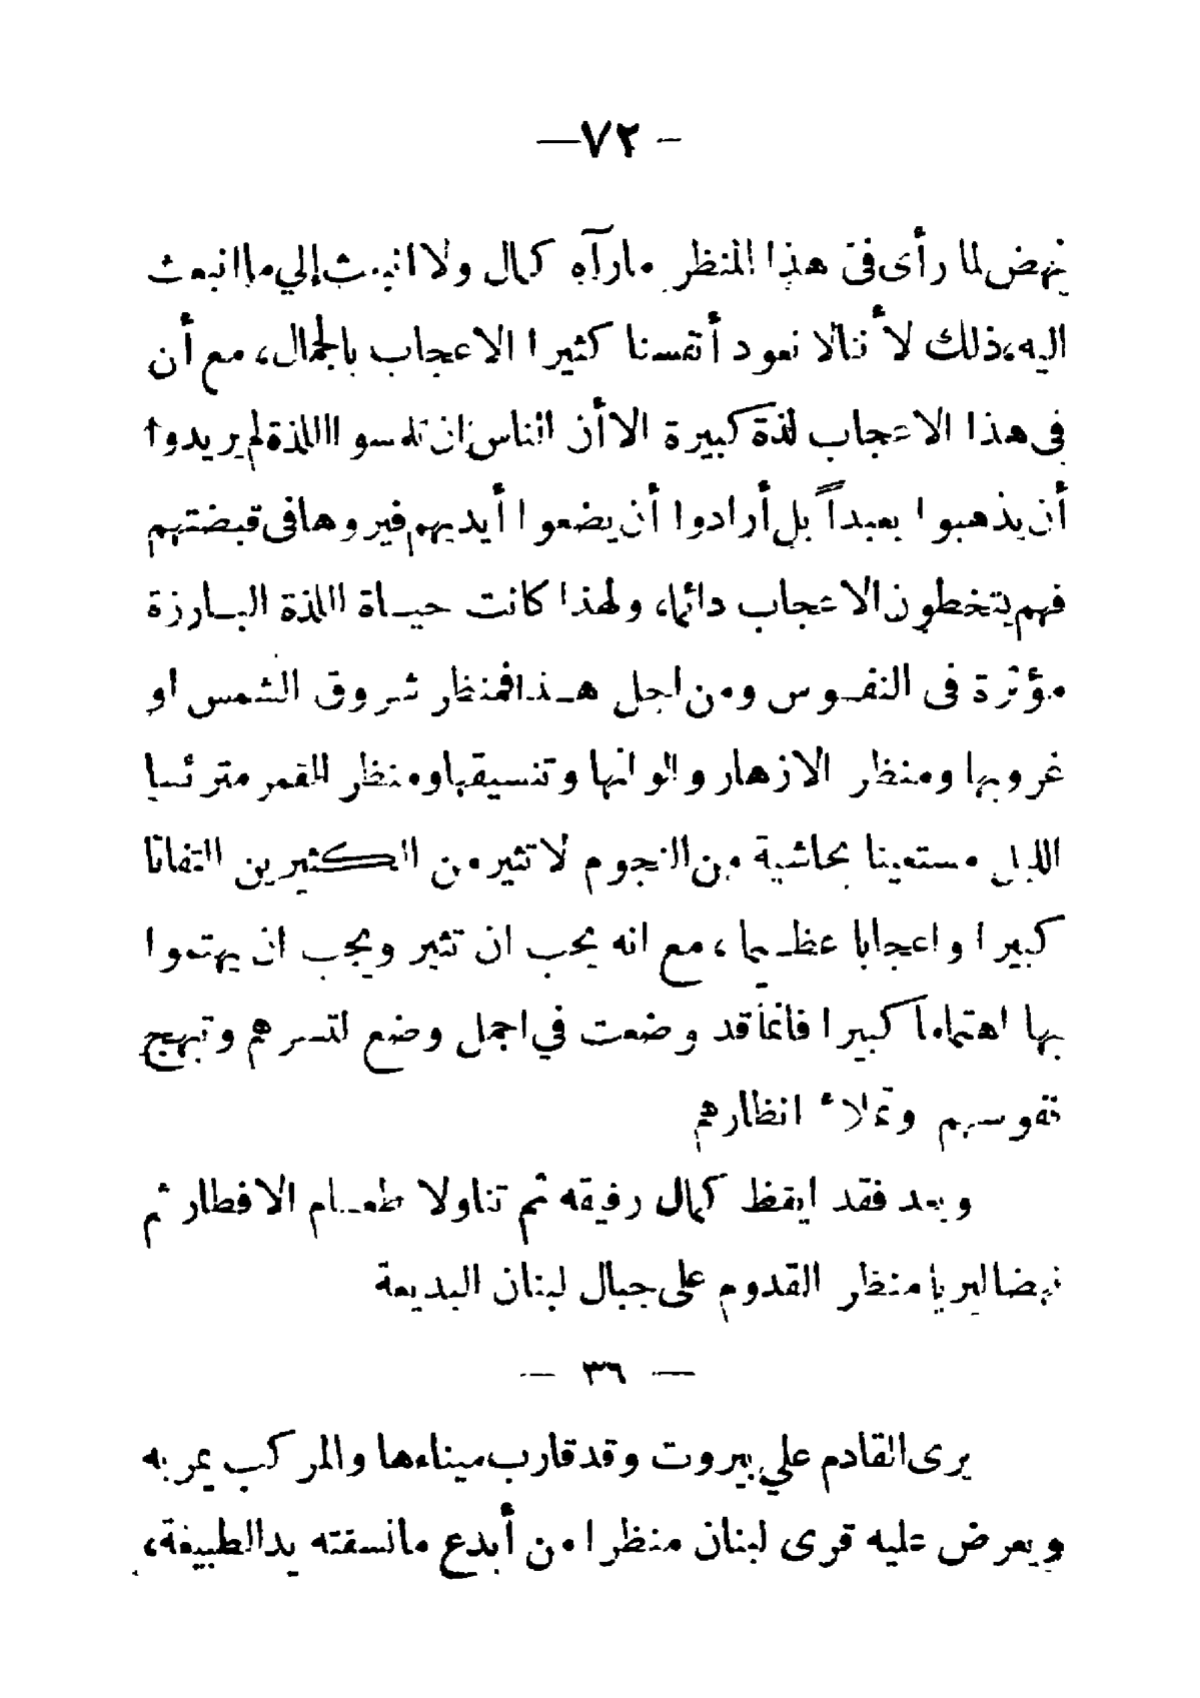 — ٧٢ —
ينهض لما رأى فى هذا المنظر مارآه كمال ولا انبعث إلي ما انبعث
اليه، ذلك لأننا لا نعود أنفسنا كثيرا الاعجاب بالجمال، مع أن
فى هذا الاعجاب لذة كبيرة الا أن الناس ان تلمسوا اللذة لم يريدوا
أن يذهبوا بعيداً بل أرادوا أن يضعوا أيديهم فيروها فى قبضتهم
فهم يتخطون الاعجاب دائما، ولهذا كانت حياة اللذة البارزة
مؤثرة فى النفوس ومن اجل هذا فمنظر شروق الشمس او
غروبها ومنظر الازهار والوانها وتنسيقها ومنظر القمر مترئسا
الليل مستعينا بحاشية من النجوم لا تثير من الكثيرين التفاتا
كبيرا واعجابا عظيما، مع انه يجب ان تثير ويجب ان يهتموا
بها اهتماما كبيرا فانما قد وضعت في اجمل وضع لتسرهم وتبهج
نفوسهم وتملاء انظارهم
وبعد فقد ايقظ كمال رفيقه ثم تناولا طعام الافطار ثم
نهضا ليريا منظر القدوم على جبال لبنان البديعة
— ٣٦ —
يرى القادم علي بيروت وقد قارب ميناءها والمركب يمر به
ويعرض عليه قرى لبنان منظرا من أبدع مانسقته يد الطبيعة،